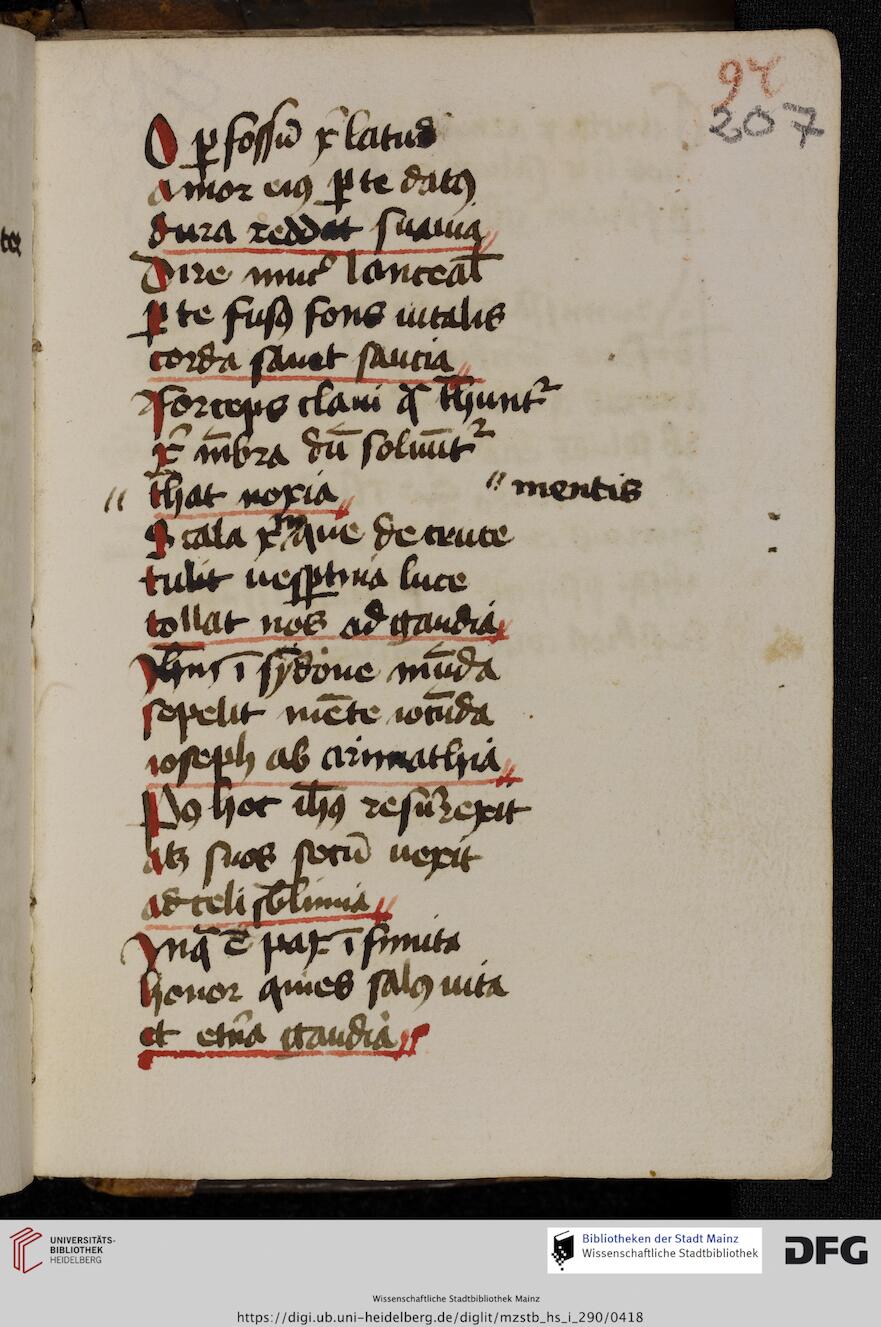 94
207
O p̱fossū xp̄ latus
amor eiꝯ p̱ te datꝯ
dura reddat suauia
Dire mucͦ lanceal̄
p̱ te fusꝯ fons uitalis
corda sanet saucia
Forceps claui q̄ t̄hunt᷑
xp̄ mēbra dū soluūt᷑
" t̄hat noxia " mentis
Scala xp̄m que de cruce
tulit uesp̱tina luce
tollat nos ad gaudia
Ihm̄ ī sydone mūda
sepelit mēte iocūda
ioseph ab arimathia
Pꝯ hoc ihꝯ resurrexit
atꝫ suos secū uexit
ad celi sb̄limia
In q̄ ē pax īfinita
honor quies salꝯ uita
et etn̄a gaudia
UNIVERSITÄTS-
BIBLIOTHEK
HEIDELBERG
Bibliotheken der Stadt Mainz
Wissenschaftliche Stadtbibliothek
DFG
Wissenschaftliche Stadtbibliothek Mainz
https://digi.ub.uni-heidelberg.de/diglit/mzstb_hs_i_290/0418